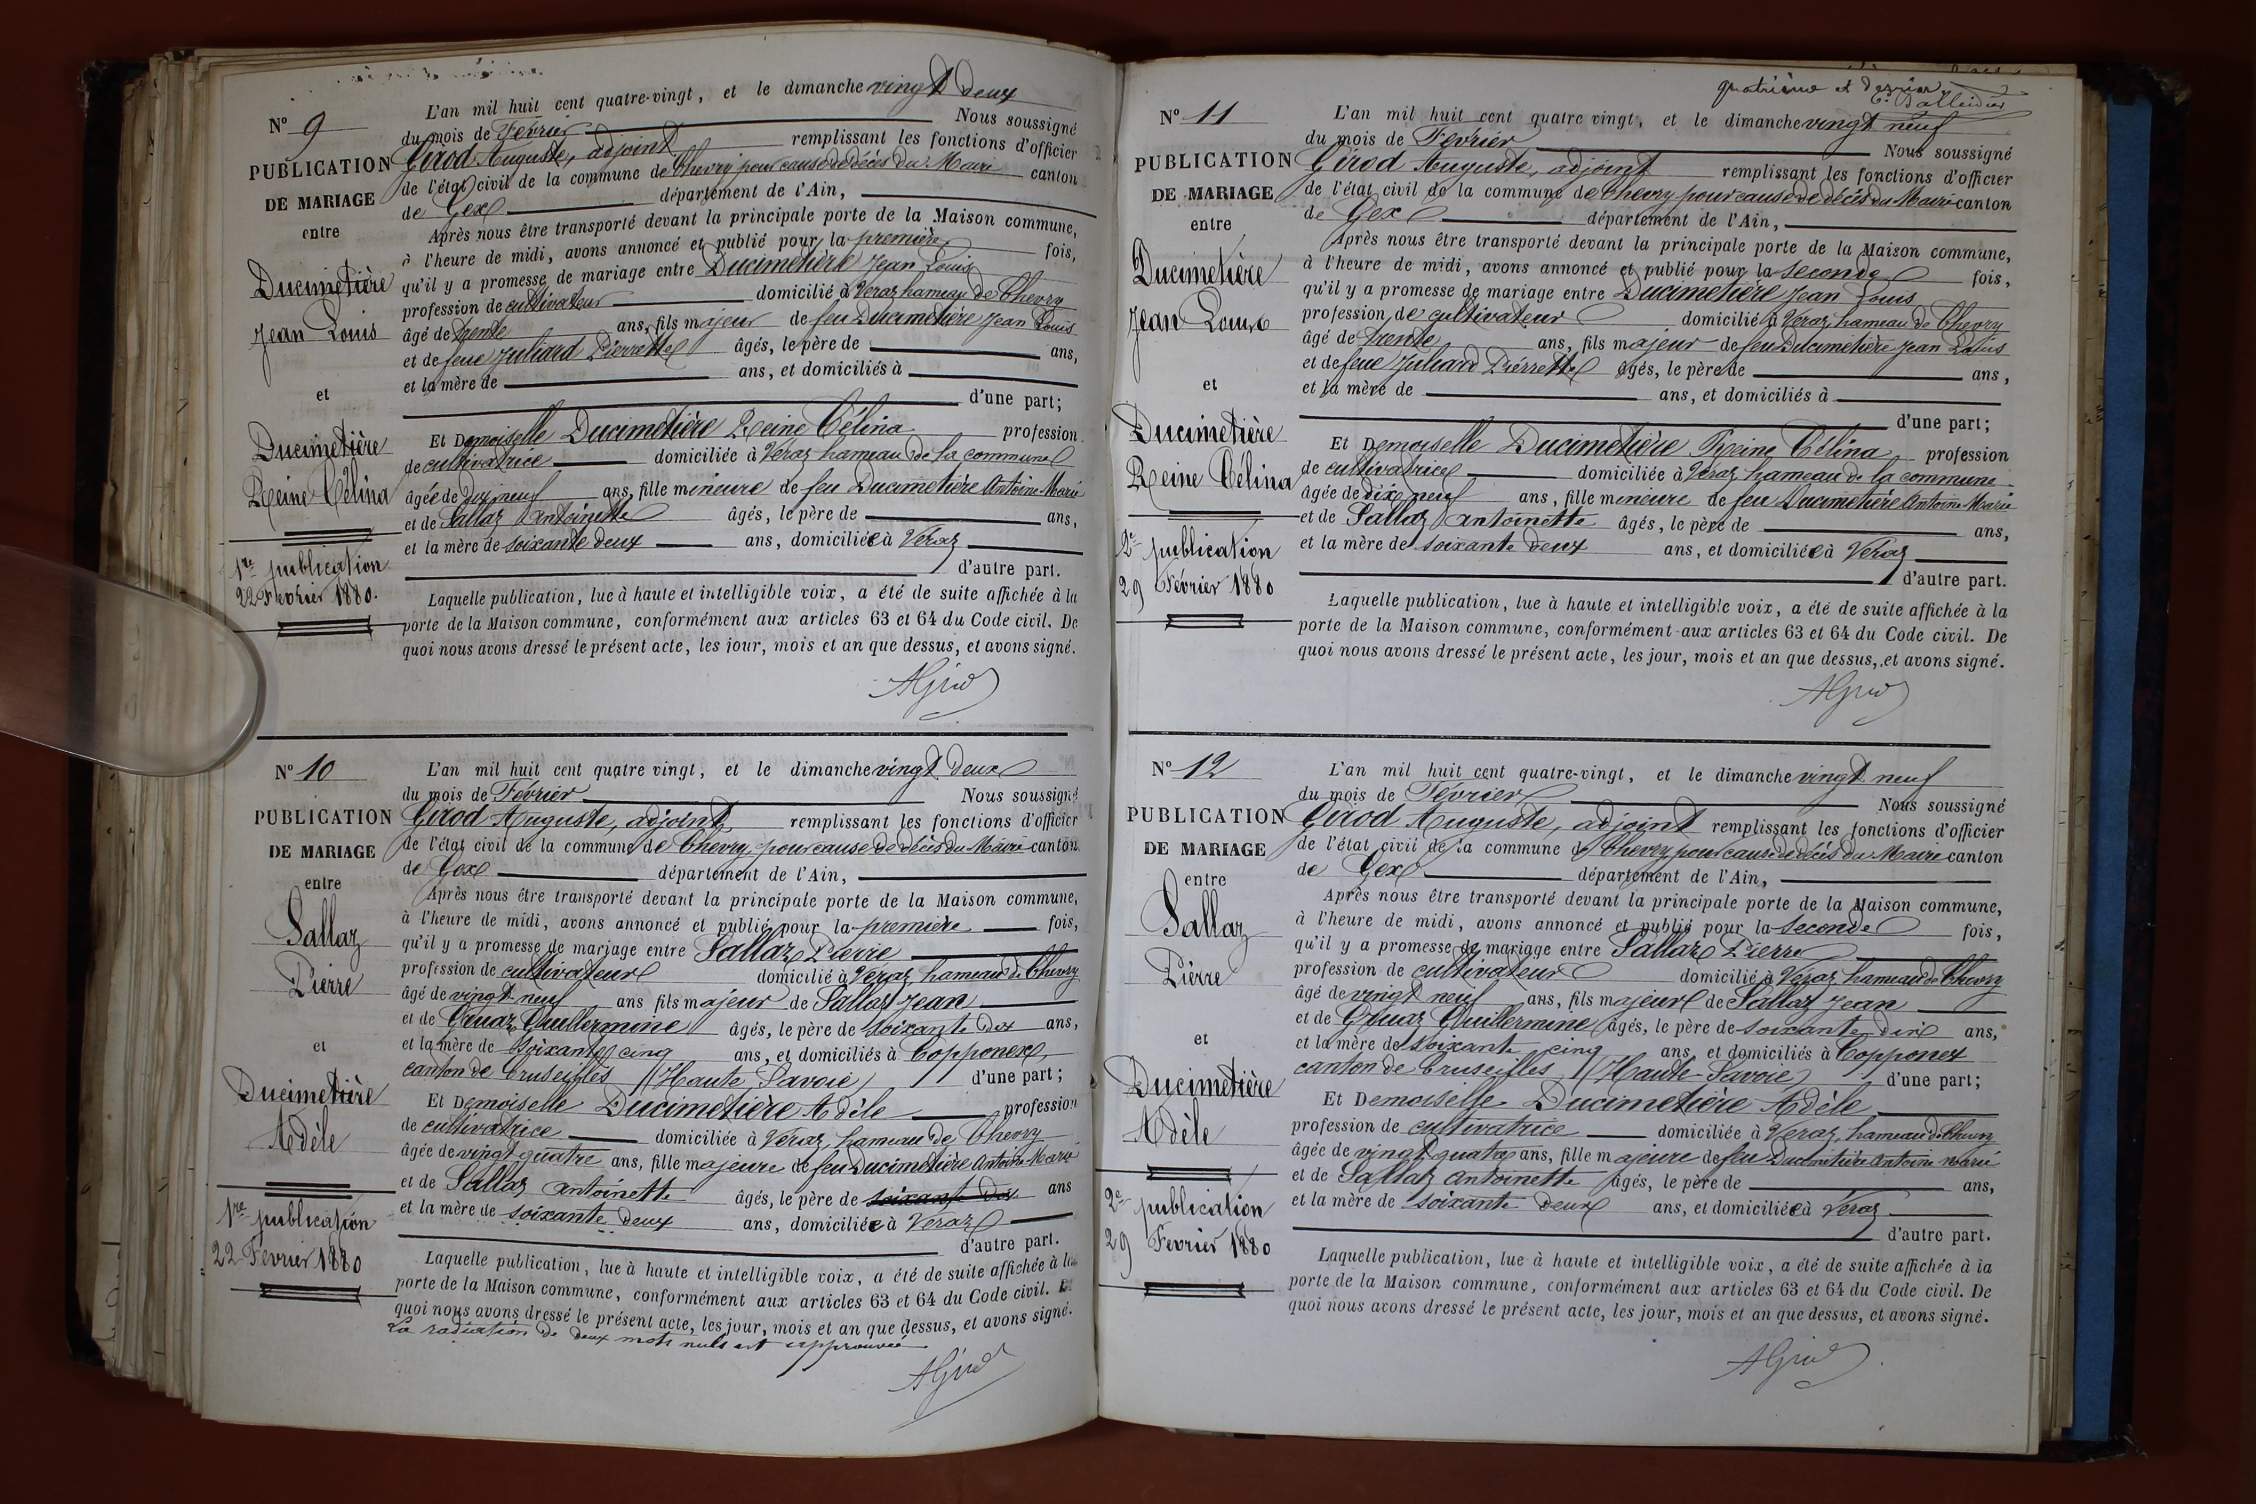 N° 9
PUBLICATION
DE MARIAGE
entre
Ducimetière
Jean Louis
et
Ducimetière
Reine Célina
1re publication
22 Février 1880.
L'an mil huit cent quatre-vingt, et le dimanche vingt deux
du mois de Février Nous soussigné
Girod Auguste, adjoint remplissant les fonctions d'officier
de l'état civil de la commune de Chevry pour cause de décès du Maire canton
de Gex département de l'Ain,
Après nous être transporté devant la principale porte de la Maison commune,
à l'heure de midi, avons annoncé et publié pour la première fois,
qu'il y a promesse de mariage entre Ducimetière Jean Louis
profession de cultivateur domicilié à Veraz hameau de Chevry
âgé de trente ans, fils majeur de feu Ducimetière Jean Louis
et de feue Juliard Pierrette âgés, le père de ans,
et la mère de ans, et domiciliés à
d'une part;
Et Demoiselle Ducimetière Reine Célina profession
de cultivatrice domiciliée à Véraz hameau de la commune
âgée de dix neuf ans, fille mineure de feu Ducimetière Antoine Marie
et de Sallaz Antoinette âgés, le père de ans,
et la mère de soixante deux ans, domiciliée à Véraz
d'autre part.
Laquelle publication, lue à haute et intelligible voix, a été de suite affichée à la
porte de la Maison commune, conformément aux articles 63 et 64 du Code civil. De
quoi nous avons dressé le présent acte, les jour, mois et an que dessus, et avons signé.
AGirod
N° 10
PUBLICATION
DE MARIAGE
entre
Sallaz
Pierre
et
Ducimetière
Adèle
1re publication
22 Février 1880
L'an mil huit cent quatre vingt, et le dimanche vingt deux
du mois de Février Nous soussigné
Girod Auguste, adjoint remplissant les fonctions d'officier
de l'état civil de la commune de Chevry, pour cause de décès du Maire canton
de Gex département de l'Ain,
Après nous être transporté devant la principale porte de la Maison commune,
à l'heure de midi, avons annoncé et publié pour la première fois,
qu'il y a promesse de mariage entre Sallaz Pierre
profession de cultivateur domicilié à Veraz, hameau de Chevry
âgé de vingt neuf ans fils majeur de Sallaz Jean
et de Gruaz Guillermine âgés, le père de soixante dix ans,
et la mère de soixante cinq ans, et domiciliés à Copponex,
canton de Cruseilles (Haute Savoie) d'une part;
Et Demoiselle Ducimetière Adèle profession
de cultivatrice domiciliée à Véraz, hameau de Chevry
âgée de vingt quatre ans, fille majeure de feu Ducimetière Antoine Marie
et de Sallaz Antoinette âgés, le père de soixante dix ans
et la mère de soixante deux ans, domiciliée à Véraz
d'autre part.
Laquelle publication, lue à haute et intelligible voix, a été de suite affichée à la
porte de la Maison commune, conformément aux articles 63 et 64 du Code civil. De
quoi nous avons dressé le présent acte, les jour, mois et an que dessus, et avons signé.
La radiation de deux mots nuls est approuvée
AGirod
quatrième et dernier
N° 11
PUBLICATION
DE MARIAGE
entre
Ducimetière
Jean Louis
et
Ducimetière
Reine Célina
2e publication
29 Février 1880
L'an mil huit cent quatre vingt, et le dimanche vingt neuf
du mois de Février Nous soussigné
Girod Auguste, adjoint remplissant les fonctions d'officier
de l'état civil de la commune de Chevry pour cause de décès du Maire canton
de Gex département de l'Ain,
Après nous être transporté devant la principale porte de la Maison commune,
à l'heure de midi, avons annoncé et publié pour la seconde fois,
qu'il y a promesse de mariage entre Ducimetière Jean Louis
profession de cultivateur domicilié à Véraz, hameau de Chevry
âgé de trente ans, fils majeur de feu Ducimetière Jean Louis
et de feue Juliard Pierrette âgés, le père de ans,
et la mère de ans, et domiciliés à
d'une part;
Et Demoiselle Ducimetière Reine Célina profession
de cultivatrice domiciliée à Véraz hameau de la commune
âgée de dix neuf ans, fille mineure de feu Ducimetière Antoine Marie
et de Sallaz Antoinette âgés, le père de ans,
et la mère de soixante deux ans, et domiciliée à Véraz
d'autre part.
Laquelle publication, lue à haute et intelligible voix, a été de suite affichée à la
porte de la Maison commune, conformément aux articles 63 et 64 du Code civil. De
quoi nous avons dressé le présent acte, les jour, mois et an que dessus, et avons signé.
AGirod
N° 12
PUBLICATION
DE MARIAGE
entre
Sallaz
Pierre
et
Ducimetière
Adèle
2e publication
29 Février 1880
L'an mil huit cent quatre-vingt, et le dimanche vingt neuf
du mois de Février Nous soussigné
Girod Auguste, adjoint remplissant les fonctions d'officier
de l'état civil de la commune de Chevry pour cause de décès du Maire canton
de Gex département de l'Ain,
Après nous être transporté devant la principale porte de la Maison commune,
à l'heure de midi, avons annoncé et publié pour la seconde fois,
qu'il y a promesse de mariage entre Sallaz Pierre
profession de cultivateur domicilié à Véraz, hameau de Chevry
âgé de vingt neuf ans, fils majeur de Sallaz Jean
et de Gruaz Guillermine âgés, le père de soixante dix ans,
et la mère de soixante cinq ans, et domiciliés à Copponex
canton de Cruseilles, (Haute-Savoie) d'une part;
Et Demoiselle Ducimetière Adèle,
profession de cultivatrice domiciliée à Veraz, hameau de Chevry
âgée de vingt quatre ans, fille majeure de feu Ducimetière Antoine Marie
et de Sallaz Antoinette âgés, le père de ans,
et la mère de soixante deux ans, et domiciliée à Véraz
d'autre part.
Laquelle publication, lue à haute et intelligible voix, a été de suite affichée à la
porte de la Maison commune, conformément aux articles 63 et 64 du Code civil. De
quoi nous avons dressé le présent acte, les jour, mois et an que dessus, et avons signé.
AGirod